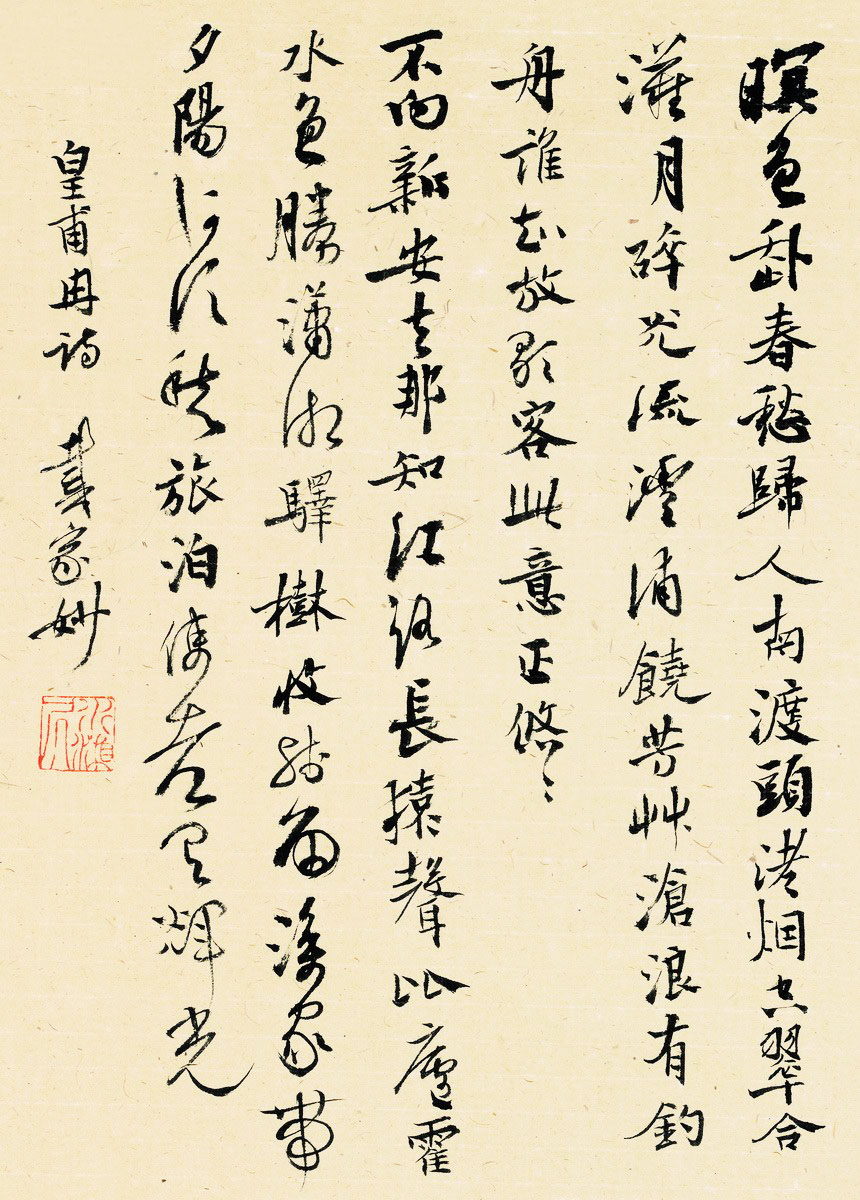 暝色赴春愁歸人南渡頭渚烟空翠合
灘月碎光流澧浦饒芳艸滄浪有釣
舟誰知放歌客此意正悠〻
不向新安去那知江路長猿聲比廬霍
水色勝瀟湘驛樹收殘雨漁家帶
夕陽何須愁旅泊使者有輝光
皇甫冉詩 戴家妙